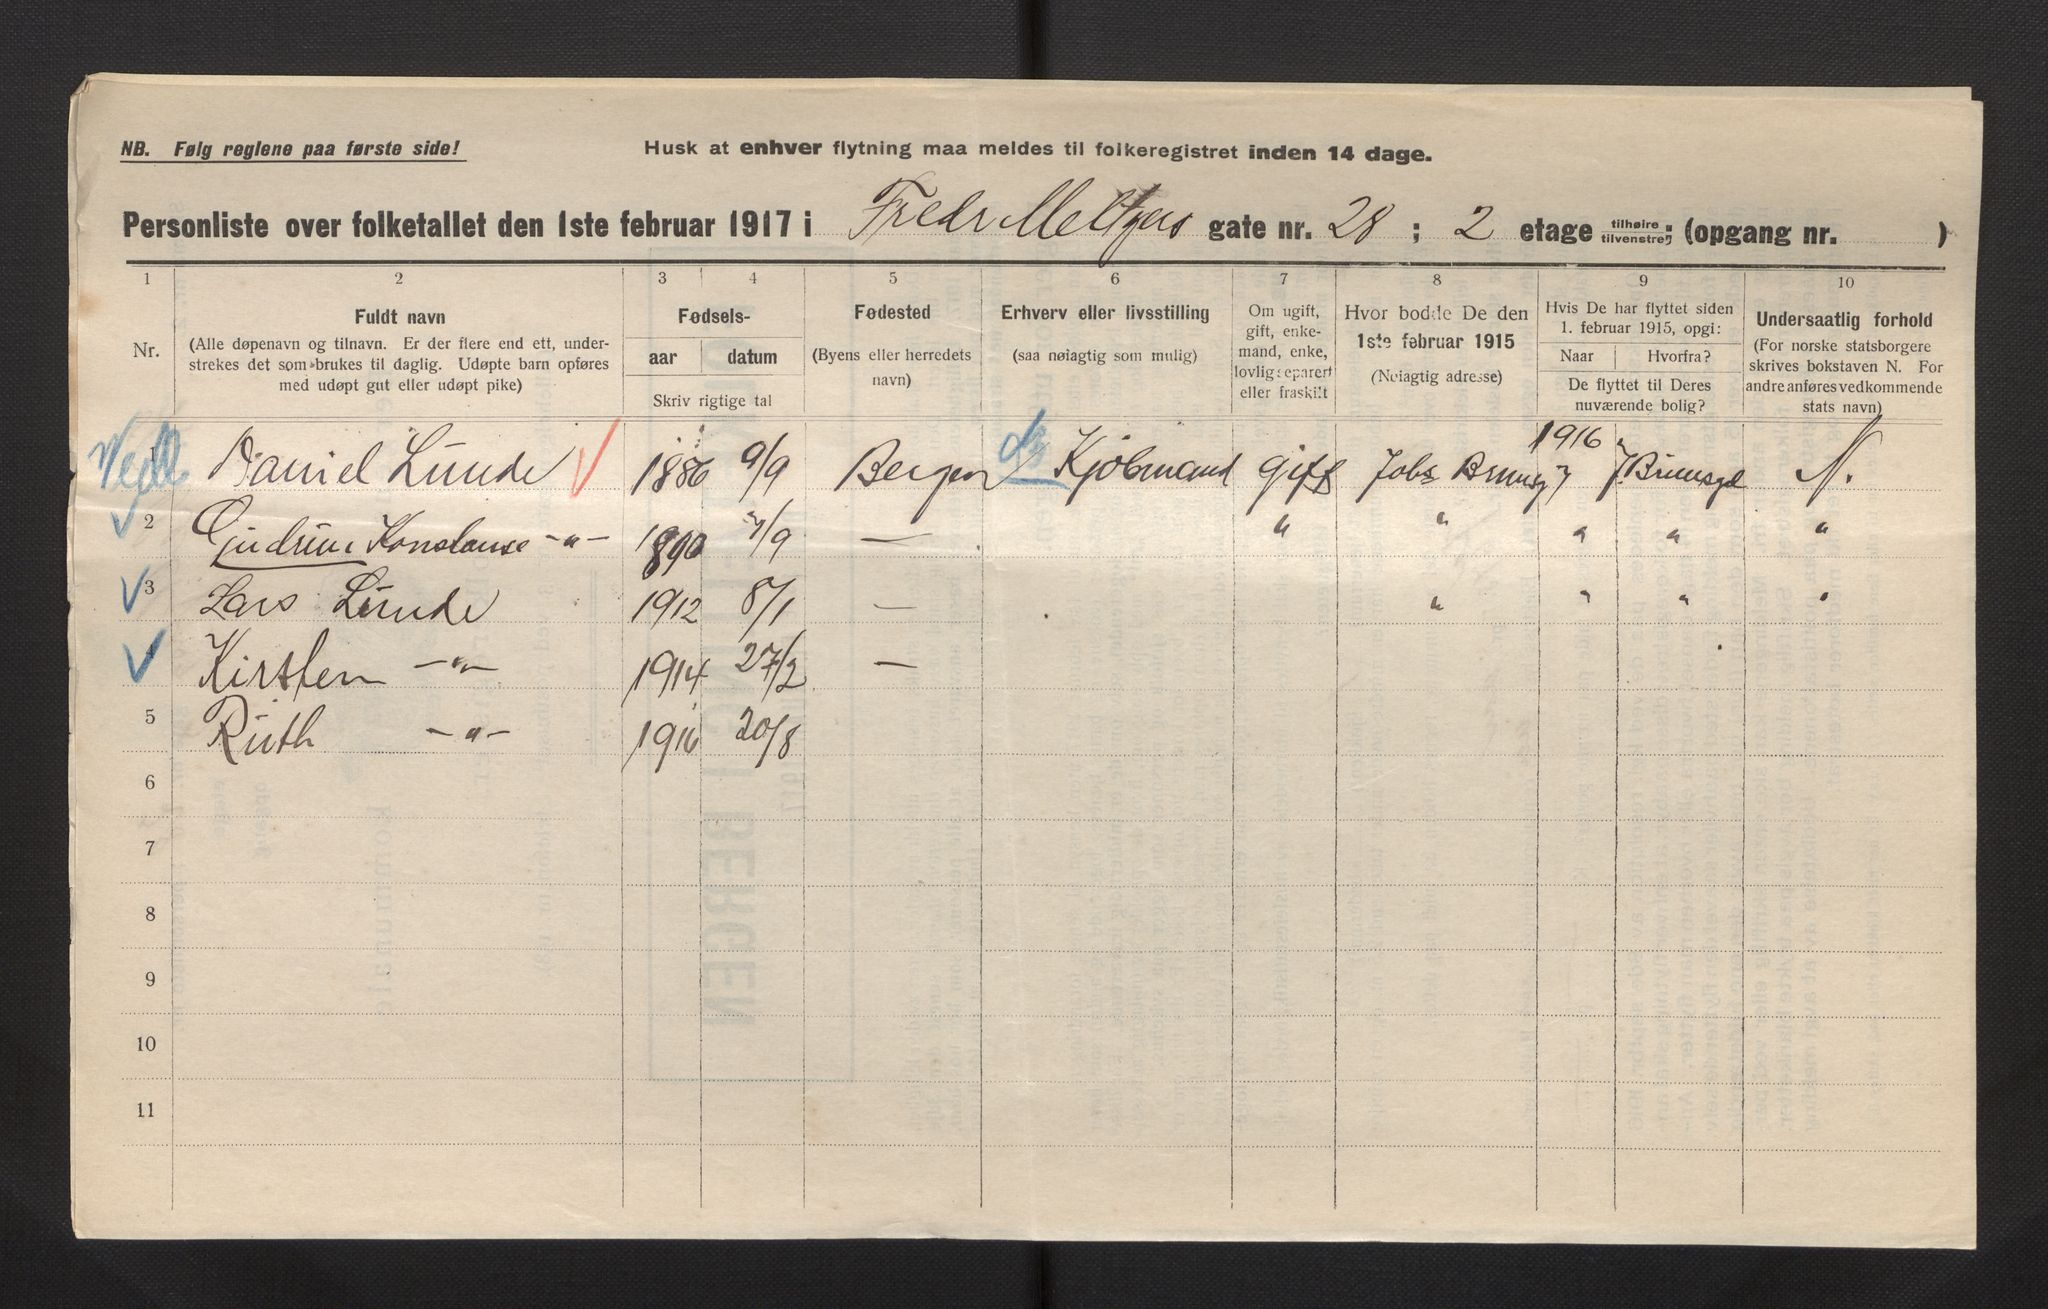 NB. Følg reglene paa første side!
Husk at enhver flytning maa meldes til folkeregistret inden 14 dage.
Personliste over folketallet den 1ste februar 1917 i Fredr Meltzers gate nr. 28 ; 2 etage tilhøire tilvenstre; (opgang nr. )
1 2 3 4 5 6 7 8 9 10
Nr.
Fuldt navn
(Alle døpenavn og tilnavn. Er der flere end ett, under-
strekes det som brukes til daglig. Udøpte barn opføres
med udøpt gut eller udøpt pike)
Fødsels-
aar datum
Skriv rigtige tal
Fødested
(Byens eller herredets
navn)
Erhverv eller livsstilling
(saa nøiagtig som mulig)
Om ugift,
gift, enke-
mand, enke,
lovlig separert
eller fraskilt
Hvor bodde De den
1ste februar 1915
(Nøiagtig adresse)
Hvis De har flyttet siden
1. februar 1915, opgi:
Naar Hvorfra?
De flyttet til Deres
nuværende bolig?
Undersaatlig forhold
(For norske statsborgere
skrives bokstaven N. For
andre anføres vedkommende
stats navn)
1 Daniel Lunde 1886 9/9 Bergen Kjöbmand gift 1916 N.
2 Gudrun Konstanse -"- 1890 7/9 — " " " " "
3 Lars Lunde 1912 8/1 — " " " "
4 Kirsten -"- 1914 27/2 —
5 Ruth -"- 1916 20/8
6
7
8
9
10
11